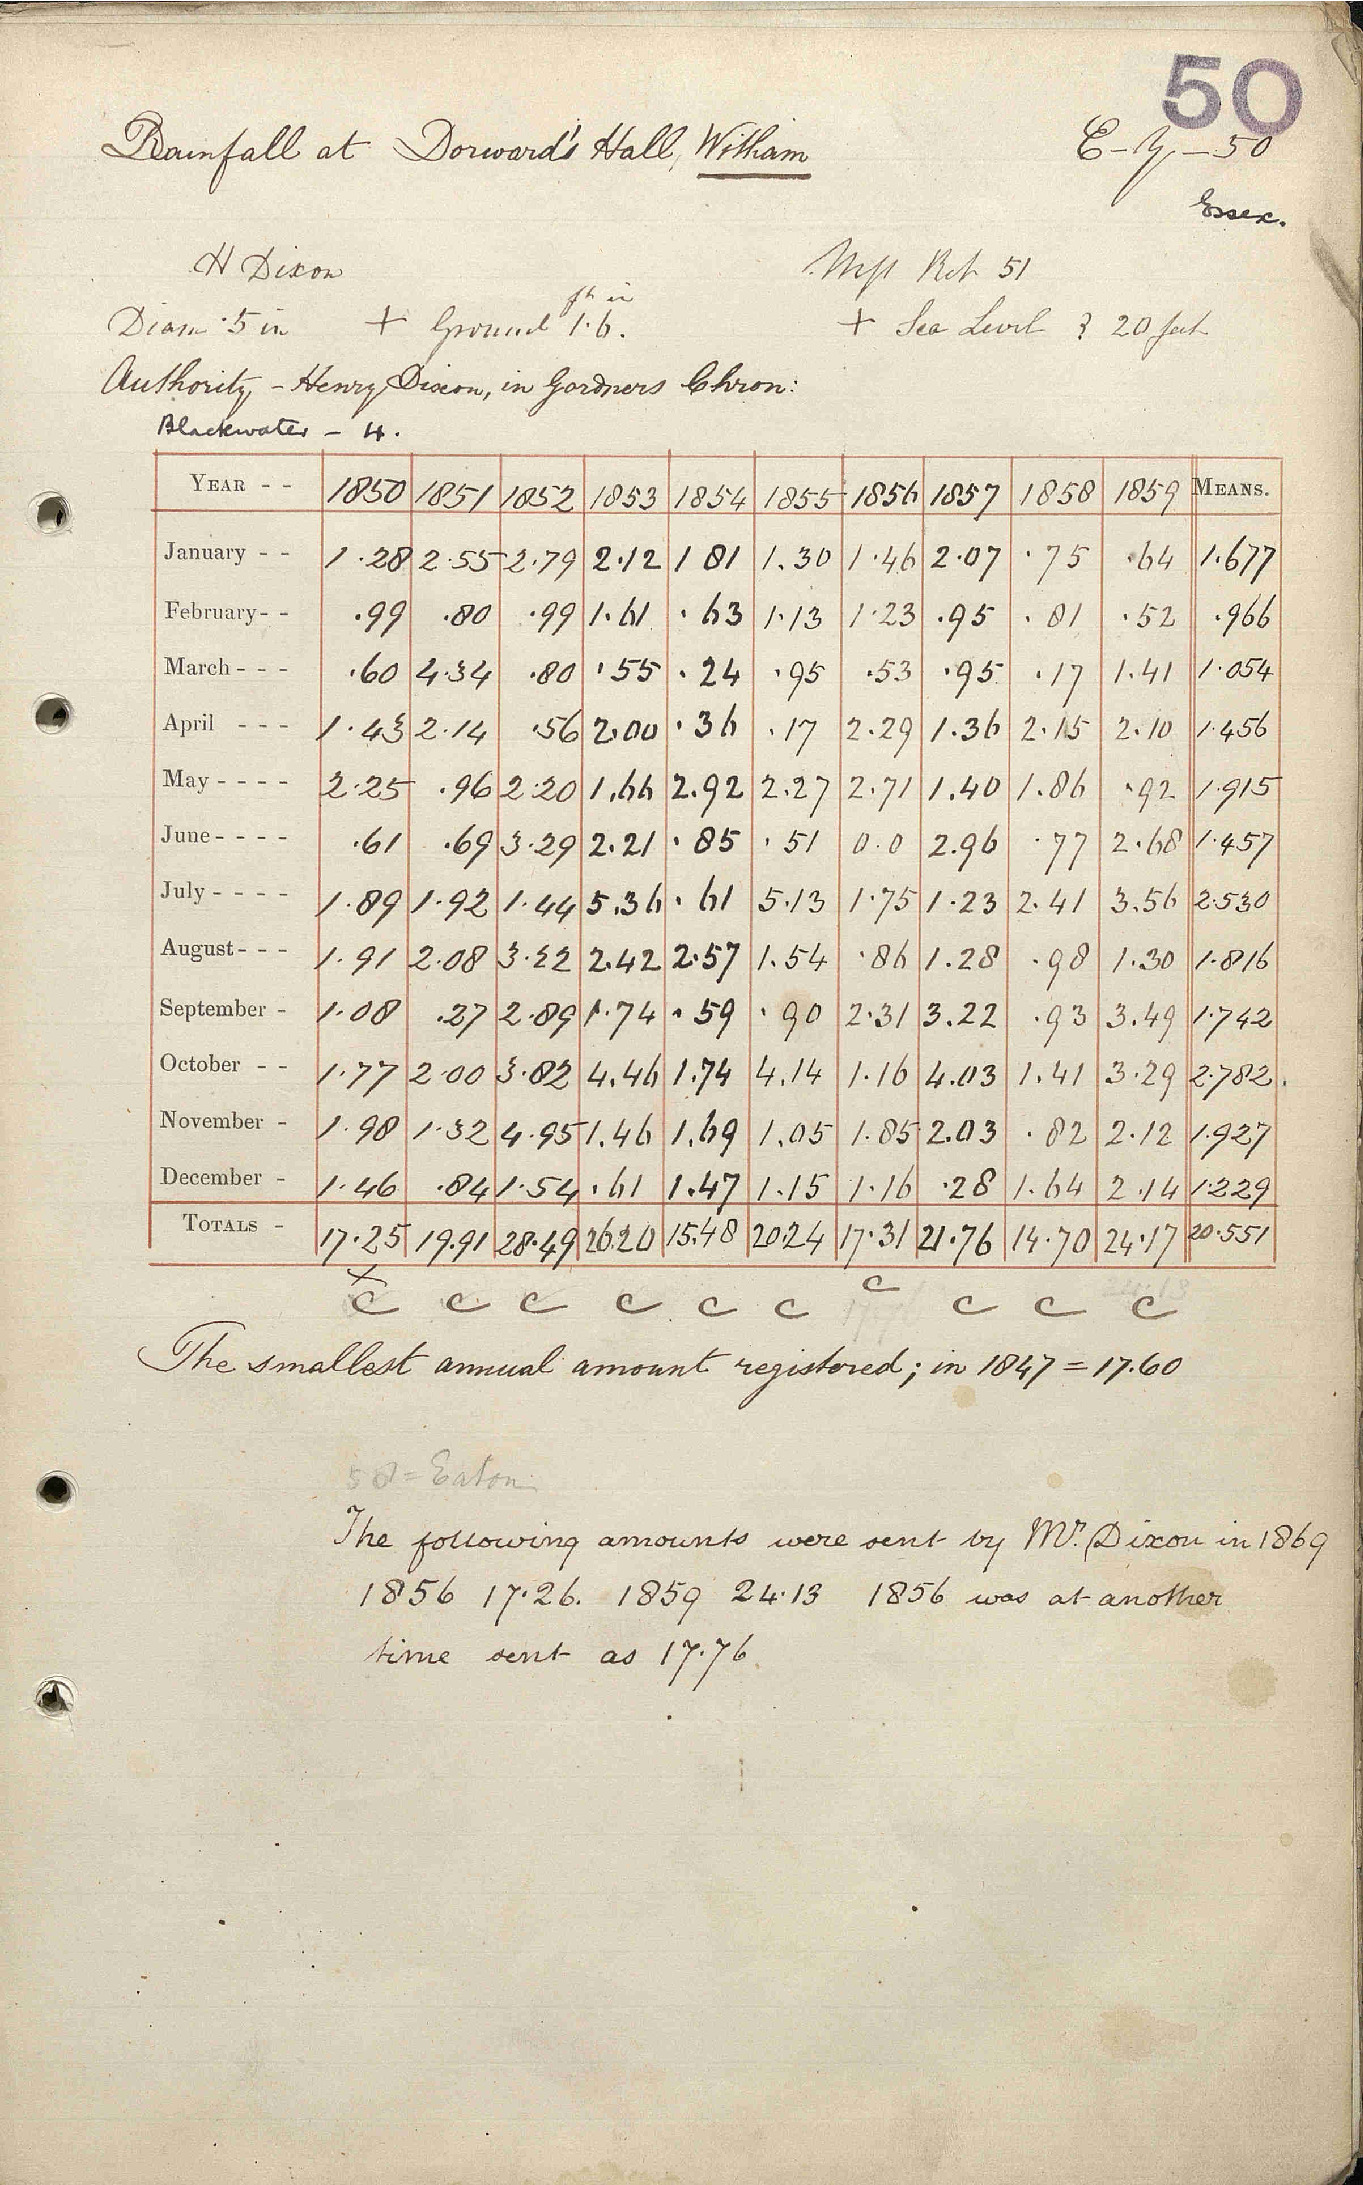 50
Rainfall at Dorward's Hall, Witham
E-y-50
Essex.
H Dixon
Mss Ret 51
ft in
Diam 5 in + Ground 1.6.
+ Sea Level ? 20 feet
Authority - Henry Dixon, in Gardners Chron:
Blackwater - 4.
YEAR - - 1850 1851 1852 1853 1854 1855 1856 1857 1858 1859 MEANS.
January - - 1.28 2.55 2.79 2.12 1 81 1.30 1.46 2.07 .75 .64 1.677
February - - .99 .80 .99 1.61 .63 1.13 1.23 .95 .81 .52 .966
March - - - .60 2.34 .80 .55 .24 .95 .53 .95 .17 1.41 1.054
April - - - 1.43 2.14 .56 2.00 .36 .17 2.29 1.36 2.15 2.10 1.456
May - - - - 2.25 .96 2.20 1.66 2.92 2.27 2.71 1.40 1.86 .92 1.915
June - - - - .61 .69 3.29 2.21 .85 .51 0.0 2.96 .77 2.68 1.457
July - - - - 1.89 1.92 1.44 5.36 .61 5.13 1.75 1.23 2.41 3.56 2.530
August - - - 1.91 2.08 3.22 2.42 2.57 1.54 .86 1.28 .98 1.30 1.816
September - 1.08 .27 2.89 1.74 .59 .90 2.31 3.22 .93 3.49 1.742
October - - 1.77 2.00 3.82 4.46 1.74 4.14 1.16 4.03 1.41 3.29 2.782.
November - 1.98 1.32 4.95 1.46 1.69 1.05 1.85 2.03 .82 2.12 1.927
December - 1.46 .84 1.54 .61 1.47 1.15 1.16 .28 1.64 2.14 1.229
TOTALS - 17.25 19.91 28.49 26.20 15.48 20.24 17.31 21.76 14.70 24.17 20.551
x
c c c c c c c c c c
The smallest annual amount registered; in 1847 = 17.60
50 = Eaton
The following amounts were sent by Mr. Dixon in 1869
1856 17.26. 1859 24.13 1856 was at another
time sent as 17.76.